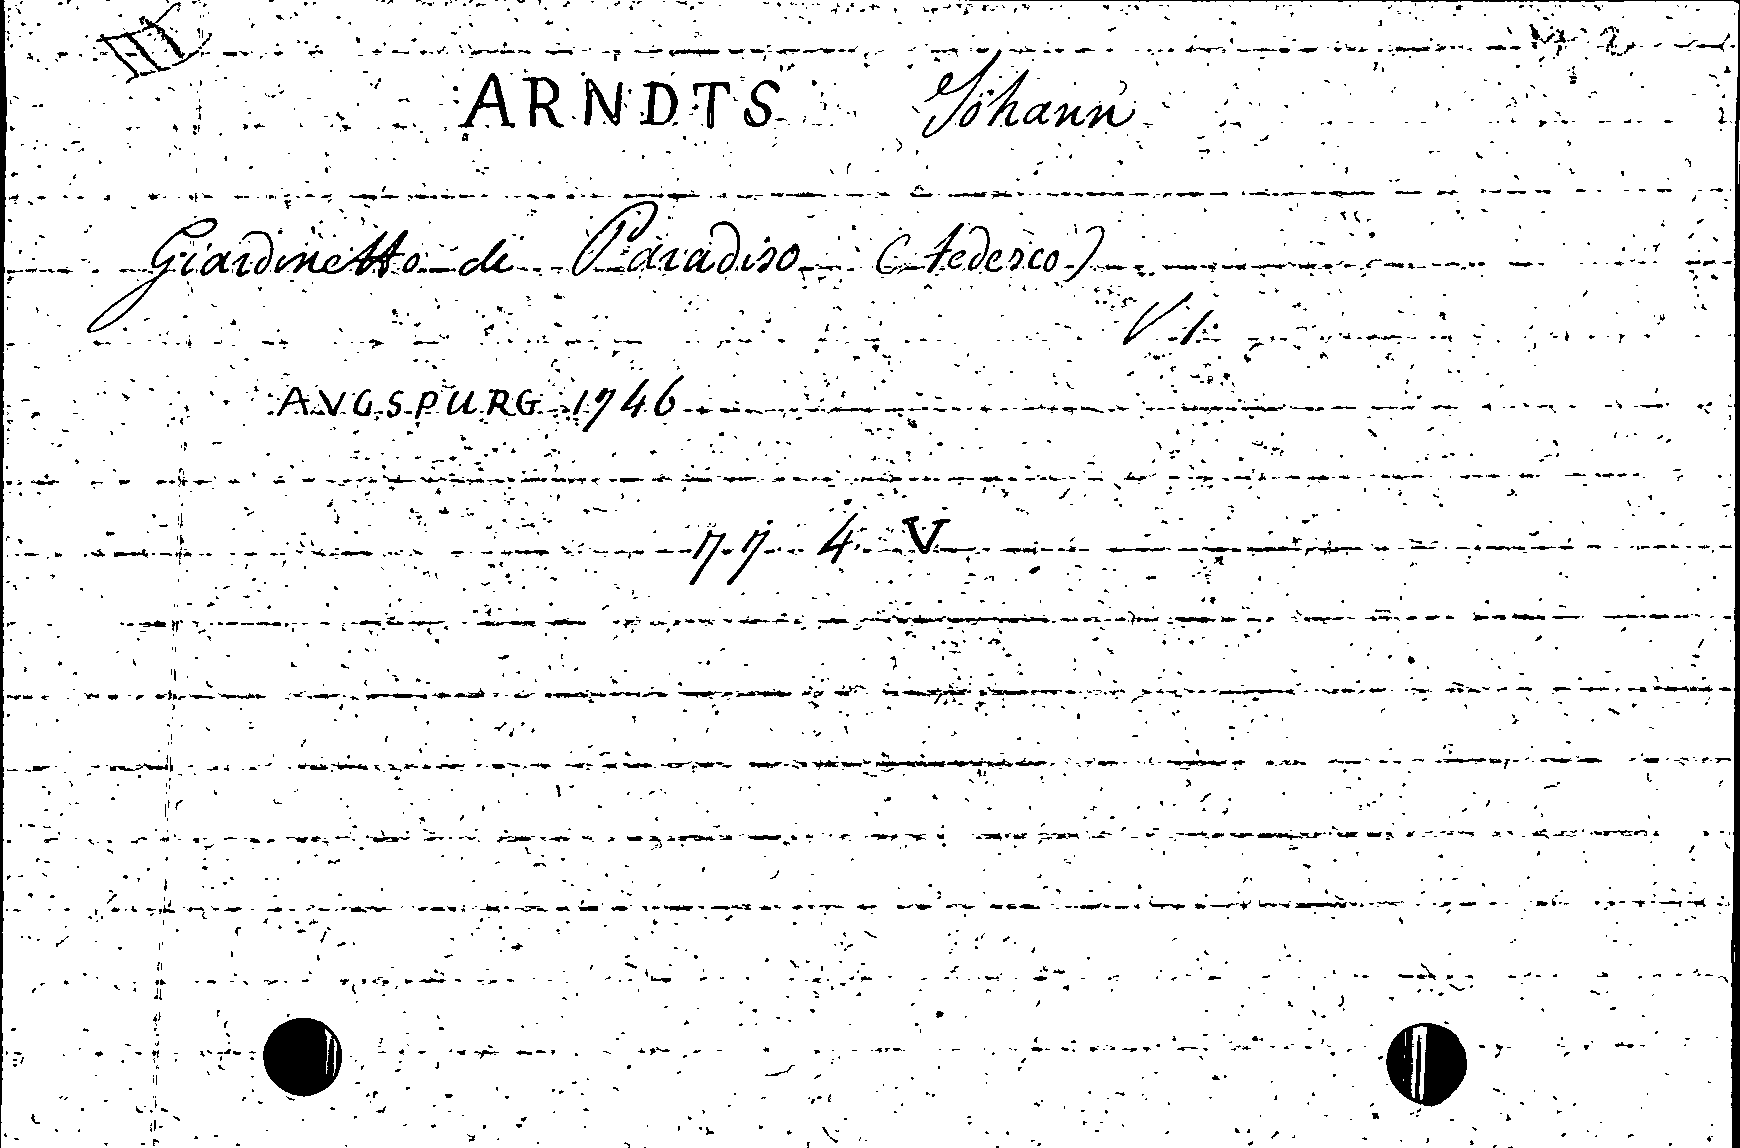 III
ARNDTS Johann
Giardinetto di Paradiso (tedesco)
AVGSPURG 1746
77 4 V